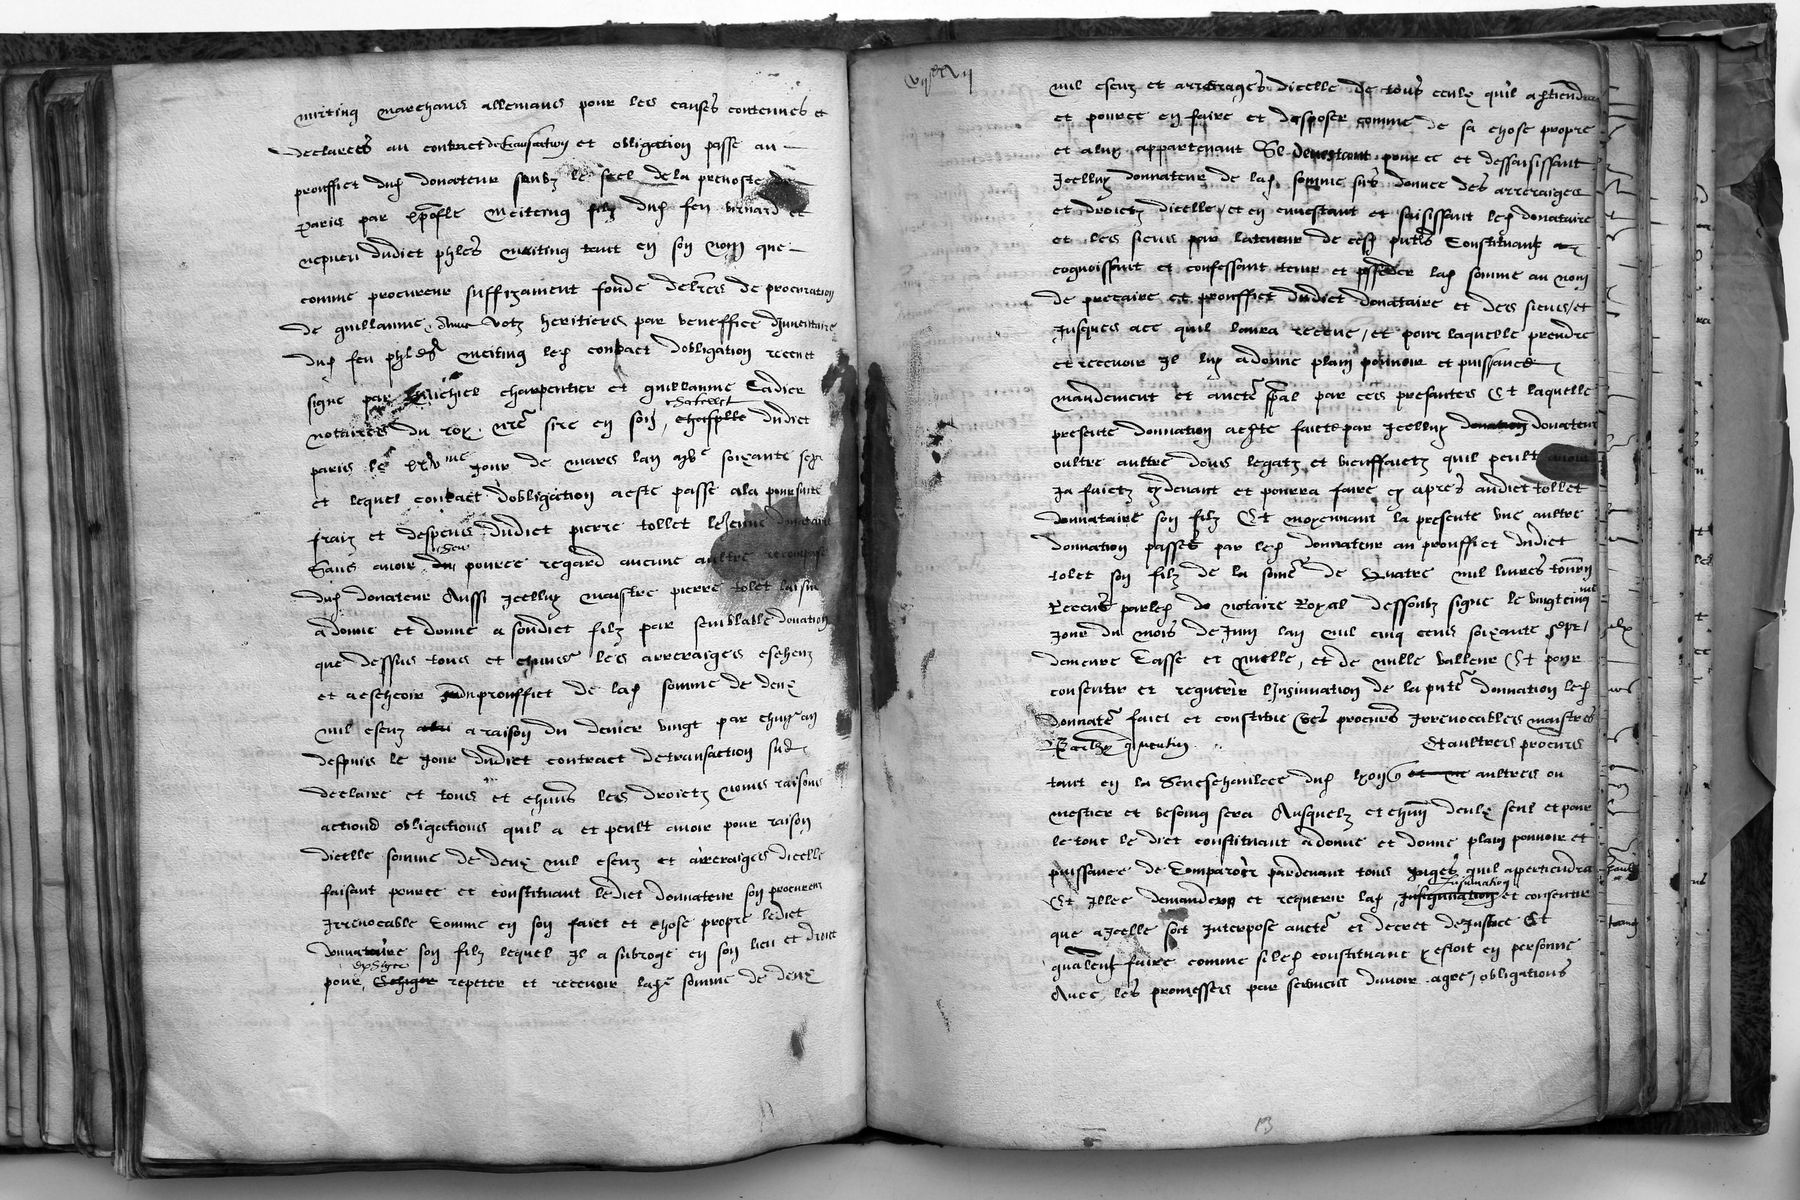 meiting marchans allemans pour les causes contenues et
declarees au contract de transaction et obligation passe au
prouffict dud donateur soubz le scel de la prevoste de
Paris par xpofle meiting filz dud feu bernard et
nepveu dudict phles meiting tant en son nom que
comme procureur suffizament fonde de lres de procuration
de guillaume votz heritiers par beneffice dinventaire
dud feu phles meiting led contract dobligation receu et
signe par michel charpentier et guillaume Cadier
notaires du roy nre sire en son chastellet dudict
paris le jour de mars lan mil vc soixante sept
et lequel contract dobligation a este passe a la poursuite
fraiz et despens dudict pierre tollet le jeune donataire
Sans avoir pource regard aucune aultre recompense
dud donateur Aussi Icelluy maistre pierre tolet
a donne et donne a sondict filz par semblable donation
que dessus tous et chuns les arreraiges escheuz
et a escheoir au prouffict de lad somme de deux
mil escuz a raison du denier vingt par chun an
despuis le jour dudict contract de transaction sus
declaire et tous et chuns les droictz noms raisons
actions obligations quil a et peult avoir pour raison
dicelle somme de deux mil escuz et arreraiges dicelle
faisant pource et constituant ledict donnateur son procureur
Irrevocable Comme en son faict et chose propre ledict
donnataire son filz lequel Il a subroge en son lieu et droict
pour exiger repeter et recevoir lad somme de deux
mil escuz et arreraiges dicelle de tous ceulx quil apartiendra
et pource en faire et disposer comme de sa chose propre
et a luy appartenant Se devestant pour ce et dessaisissant
Icelluy donnateur de lad somme sus donnee des arreraiges
et droictz dicelle / et en envestant et saisissant led donataire
et les siens par la teneur de cesd pntes Constituant
cognoissant et confessant tenir et posseder lad somme au nom
de precaire et prouffict dudict donataire et des siens / et
Jusques a ce quil laura receue / et pour laquelle prendre
et recevoir Il luy a donne plain pouvoir et puissance
mandement et aucte spal par ces presantes Et laquelle
presente donnation a este faicte par Icelluy donateur
oultre aultre dons legatz et bienffaictz quil peult avoir
Ja faictz cy devant et pourra faire cy apres audict tollet
donnataire son filz Et moyennant la presente une aultre
donnation passee par led donnateur au prouffict dudict
tolet son filz de la some de Quatre mil livres tourn
Receue par led notaire Royal dessoubz signe le vingtcinqme
Jour du mois de Juin lan mil cinq cens soixante sept /
demeure Casse et nulle, et de nulle valleur Et pour
consentir et requerir linsinuation de la pnte donnation led
donnate faict et constitue ses procurs Irrevocables maistres
quentin Et aultres procurs
tant en la Seneschaulcee dud lyon aultres ou
mestier et besoing sera Ausquelz et chun deulx seul et pour
le tout le dict constituant a donne et donne plain pouvoir et
puissance de Comparoir pardevant tous Juges quil apertiendra
Et Illec demander et requerir lad Insinuation et consentir
que a Icelle soit Interpose aucte et decret de Justice Et
qualemt faire comme si led constituant y estoit en personne
Avec les promesses par serment davoir agre, obligations